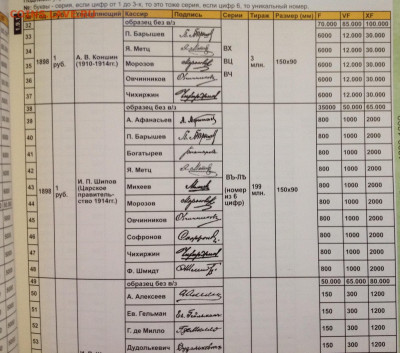 буквы - серия, если цифр от 1 до 3-х, то это тоже серия, если цифр 6, то уникальный номер.
Год Руб. Управляющий Кассир Подпись Серии Тираж Размер (мм) F VF XF
32 образец без в/з 70.000 85.000 100.000
1898 1 руб. А. В. Коншин (1910-1914гг.) ВХ ВЦ ВЧ 3 млн. 150x90
П. Барышев 6000 12.000 30.000
34 Я. Метц 6000 12.000 30.000
35 Морозов 6000 12.000 30.000
36 Овчинников 6000 12.000 30.000
37 Чихиржин 6000 12.000 30.000
38 образец без в/з 35000 50.000 65.000
1898 1 руб. И. П. Шипов (Царское правительство 1914гг.) ВЪ-ЛЪ (номер из 6 цифр) 199 млн. 150x90
39 А. Афанасьев 800 1000 2000
40 П. Барышев 800 1000 2000
41 Богатырев 800 1000 2000
42 Я. Метц 800 1000 2000
43 Михеев 800 1000 2000
44 Морозов 800 1000 2000
45 Овчинников 800 1000 2000
46 Софронов 800 1000 2000
47 Чихиржин 800 1000 2000
48 Ф. Шмидт 800 1000 2000
49 образец без в/з 50.000 65.000 80.000
50 А. Алексеев 150 300 1200
51 Ев. Гельман 150 300 1200
52 Г. де Милло 150 300 1200
53 Дудолькевич 150 300 1200